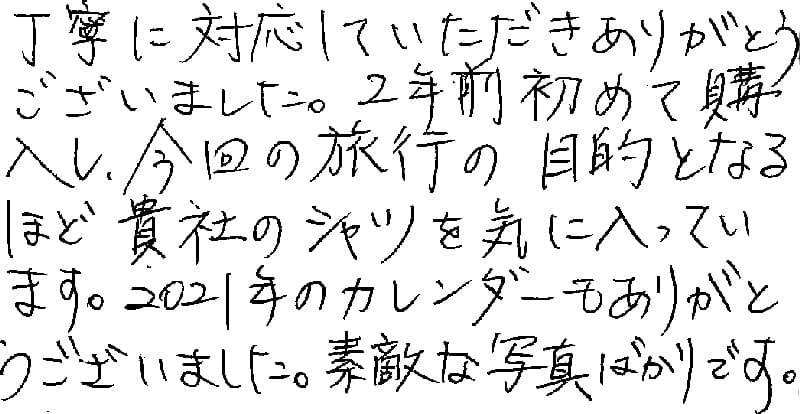 丁寧に対応していただきありがとう
ございました。2年前初めて購
入し、今回の旅行の目的となる
ほど貴社のシャツを気に入ってい
ます。2021年のカレンダーもありがと
うございました。素敵な写真ばかりです。